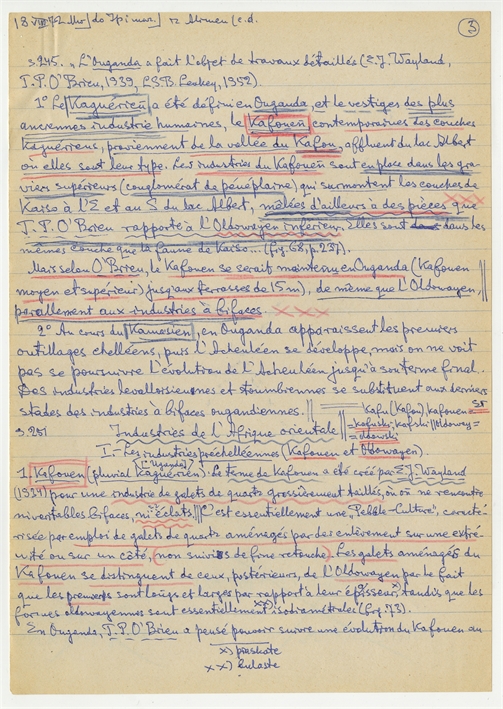 3
s. 245. „L'Ouganda a fait l'objet de travaux détaillés (E.J. Wayland,
T.P. O'Brien, 1939, L.S.B. Leakey, 1952).
1° Le Kaguérien a été défini en Ouganda, et le vestiges des plus
anciennes industrie humaines, le Kafouen contemporaines des couches
Kaguériens, proviennent de la vallée du Kafou, affluent du lac Albert
où elles sont leur type. Les industries du Kafouen sont en place dans les gra-
viers supérieurs (conglomérat de pénéplaine) qui surmontent les couches de
Kaiso à l'E et au S du lac Albert, mêlées d'ailleurs à des pièces que
T.P. O'Brien rapporte à l'Oldowayen inférieur. Elles sont dans les
mêmes couche que la faune de Kaiso... (fig. 68, p. 237).
Mais selon O'Brien, le Kafouen se serait maintenu en Ouganda (Kafouen
moyen et supérieur) jusqu'aux terrasses de 15 m), de même que l'Oldowayen,
parallement aux industries à bifaces
2° Au cours du Kamasien, en Ouganda apparaissent les premiers
outillages chelléens, puis l'Acheuléen se développe, mais on ne voit
pas se poursuivre l'évolution de l'Acheuléen jusqu'à son terme final.
Des industries levalloisiennes et stoumbiennes se substituent aux derniers
stades des industries à bifaces ougandiennes.
Kafu (Kafou), kafouen =
= kafuski, kafski || oldoway =
= oldowski
s. 251 Industries de l'Afrique orientale
I. - Les industries préchelléennes (Kafouen et Oldowayen).
(L'Uganda)
1. Kafouen (pluvial Kaguérien). Le terme de Kafouen a été créé par E.J. Wayland
(1934) pour une industrie de galets de quartz grossièrement taillés, où on ne rencontre
ni véritables bifaces, ni éclats, C'est essentiellement une „Pebble-Culture", caracté-
risée par emploi de galets de quartz aménagés par des enlèvement sur une extré-
mité ou sur un côté, (non suivis de fine retouche). Les galets aménagés du
Kafouen se distinguent de ceux, postérieurs, de l'Oldowayen par le fait
que les premiers sont longs et larges par rapport à leur épaisseur, x) tandis que les
formes oldowayennes sont essentiellement xx) isodiamétrales (fig. 73).
En Ouganda, T.P. O'Brien a pensé pouvoir suivre une évolution du Kafouen au
x) płaskate
xx) kulaste